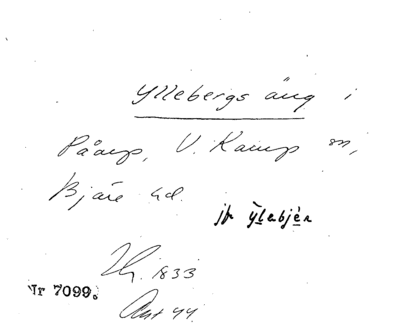 Yllebergs äng i
Påarp, V. Karup sn,
Bjäre hd.
jfr ylabjär
1833
Nr 7099.
Akt 44